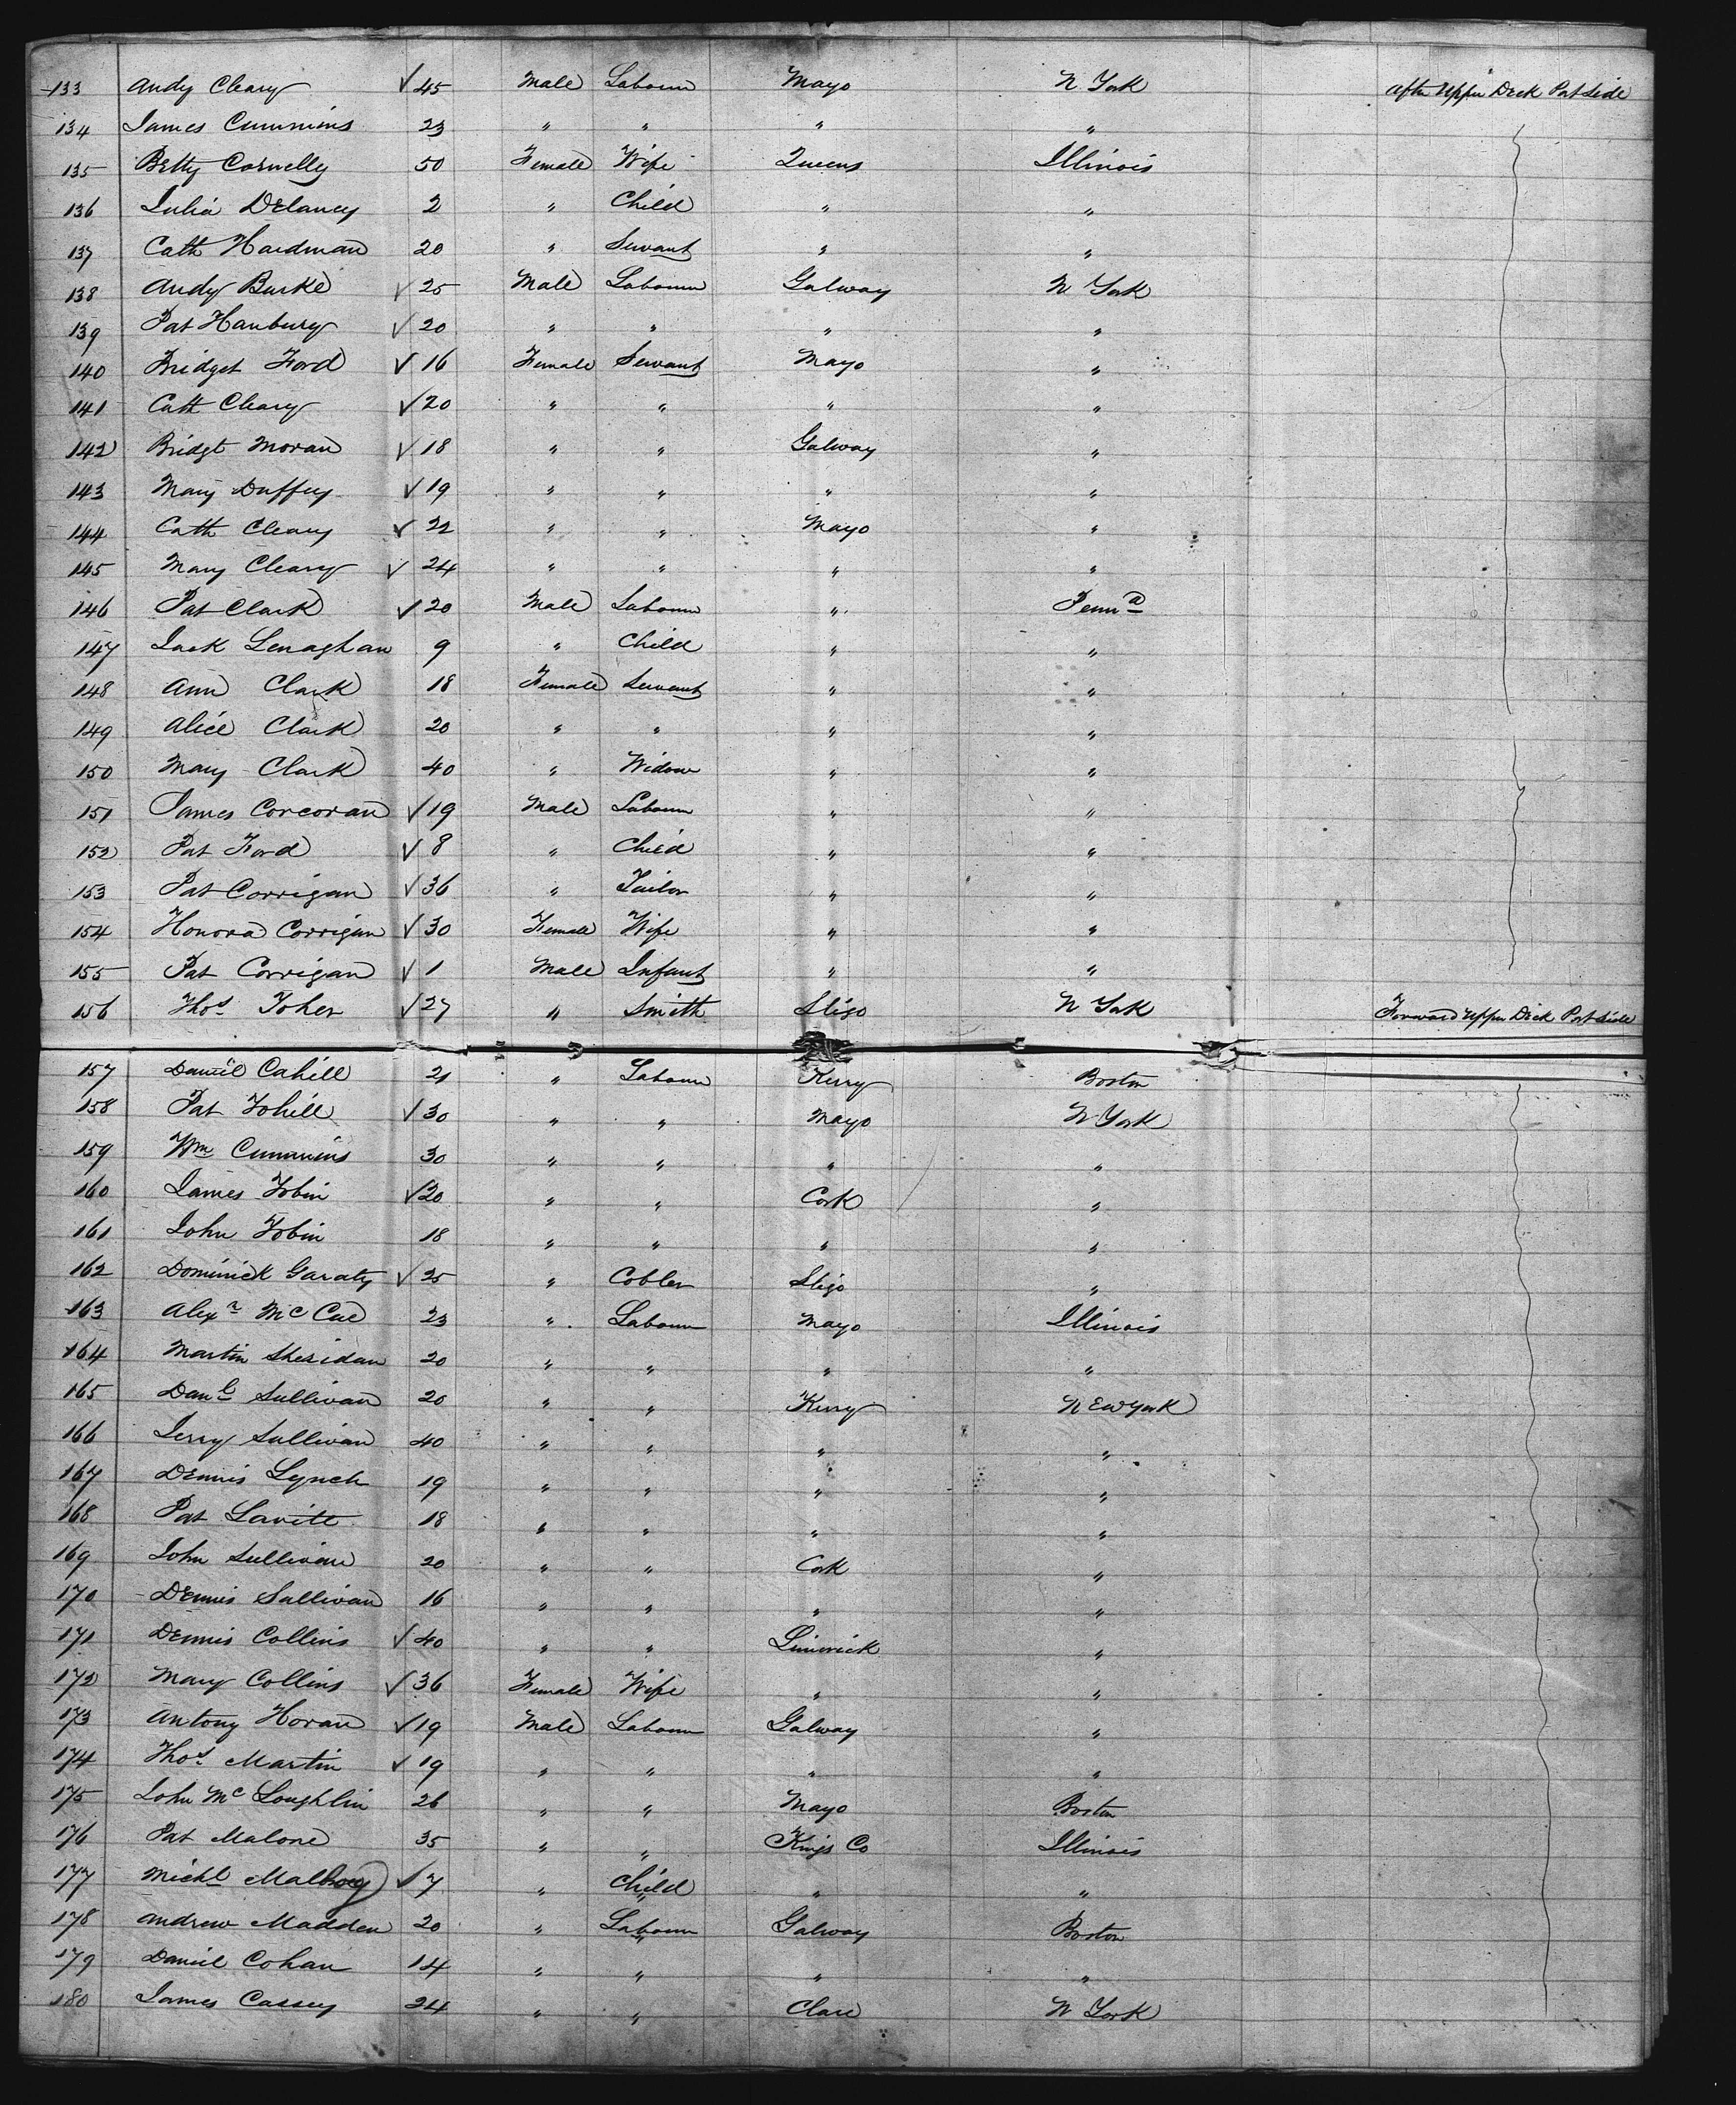 133 Andy Cleary √ 45 Male Labourer Mayo N York After Upper Deck Port Side
134 James Cummins 23 " " " "
135 Betty Cornelly 50 Female Wife Queens Illinois
136 Julia Delaney 2 " Child " "
137 Cath Hardman 20 " Servant " "
138 Andy Burke √ 25 Male Labourer Galway N York
139 Pat Hanbury √ 20 " " " "
140 Bridget Ford √ 16 Female Servant Mayo "
141 Cath Cleary √ 20 " " " "
142 Bridgt Moran √ 18 " " Galway "
143 Mary Duffey √ 19 " " " "
144 Cath Cleary √ 22 " " Mayo "
145 Mary Cleary √ 24 " " " "
146 Pat Clark √ 20 Male Labourer " Penna
147 Jack Lenaghan 9 " Child " "
148 Ann Clark 18 Female Servant " "
149 Alice Clark 20 " " " "
150 Mary Clark 40 " Widow " "
151 James Corcoran √ 19 Male Labourer " "
152 Pat Ford √ 8 " Child " "
153 Pat Corrigan √ 36 " Tailor " "
154 Honora Corrigan √ 30 Female Wife " "
155 Pat Corrigan √ 1 Male Infant " "
156 Thos Toher √ 27 " Smith Sligo N York Forward Upper Deck Port Side
157 Daniel Cahill 21 " Labourer Kerry Boston
158 Pat Tohill √ 30 " " Mayo N York
159 Wm Cummins 30 " " " "
160 James Tobin √ 20 " " Cork "
161 John Tobin 18 " " " "
162 Dominick Garaty √ 25 " Cobler Sligo "
163 Alexr McCue 23 " Labourer Mayo Illinois
164 Martin Sheridan 20 " " " "
165 Danl Sullivan 20 " " Kerry New York
166 Jerry Sullivan 40 " " " "
167 Dennis Lynch 19 " " " "
168 Pat Lavitt 18 " " " "
169 John Sullivan 20 " " Cork "
170 Dennis Sullivan 16 " " " "
171 Dennis Collins √ 40 " " Limerick "
172 Mary Collins √ 36 Female Wife " "
173 Antony Horan √ 19 Male Labourer Galway "
174 Thos Martin √ 19 " " " "
175 John McLoughlin 26 " " Mayo Boston
176 Pat Malone 35 " " Kings Co Illinois
177 Michl √ 7 " Child " "
178 Andrew Madden 20 " Labourer Galway Boston
179 Daniel Cohan 14 " " " "
180 James Cassey 24 " " Clare N York